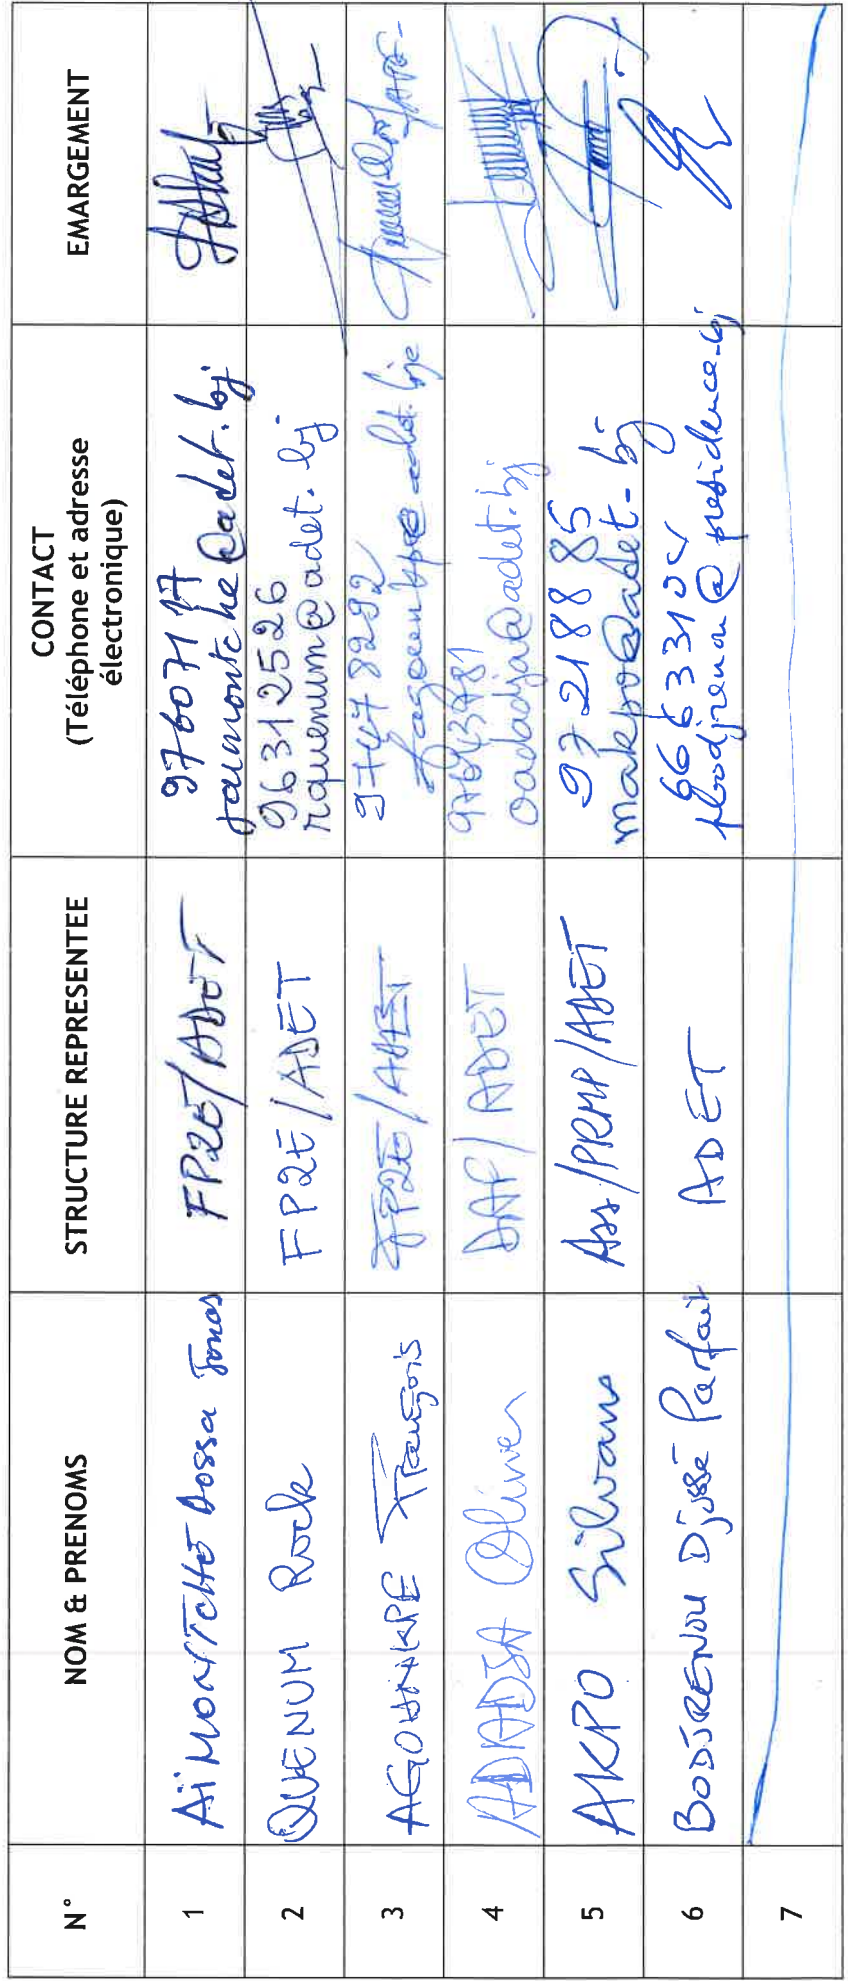 N°
NOM & PRENOMS
STRUCTURE REPRESENTEE
CONTACT
(Téléphone et adresse
électronique)
EMARGEMENT
1
AÏMONTCHE Dossa Jonas
FP2E/ADET
97607117
jaimontche@adet.bj
2
QUENUM Rock
FP2E/ADET
96312526
rquenum@adet.bj
3
AGOUNKPE François
FP2E/ADET
97478292
fagounkpe@adet.bj
4
ADADJA Olivier
DAF/ADET
oadadja@adet.bj
5
AKPO Silvans
Ass/PRMP/ADET
97218885
makpo@adet.bj
6
BODJRENOU Djossè Parfait
ADET
7